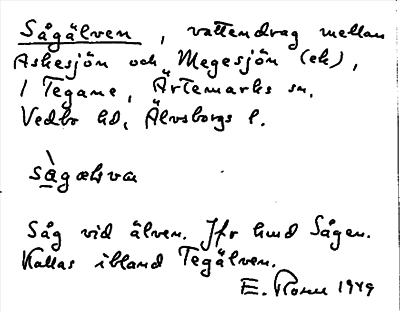 Sågälven, vattendrag mellan
Askesjön och Megesjön (ek),
i Tegane, Ärtemarks sn,
Vedbo hd, Älvsborgs l.
sàgæłva
Såg vid älven. Jfr hmd Sågen.
Kallas ibland Tegälven.
E. 1949